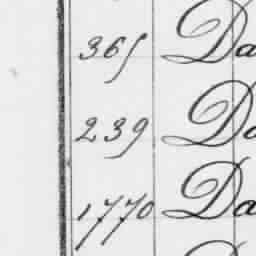 365 Da
239 Da
1770 Da